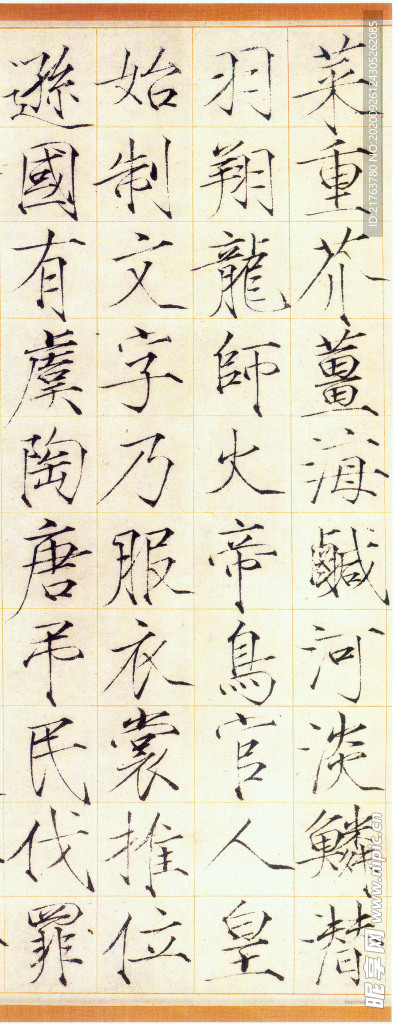 菜重芥薑海鹹河淡鱗潛
羽翔龍師火帝鳥官人皇
始制文字乃服衣裳推位
遜國有虞陶唐弔民伐罪
ID:21763780 NO:20200926124305262085
昵享网 www.nipic.cn